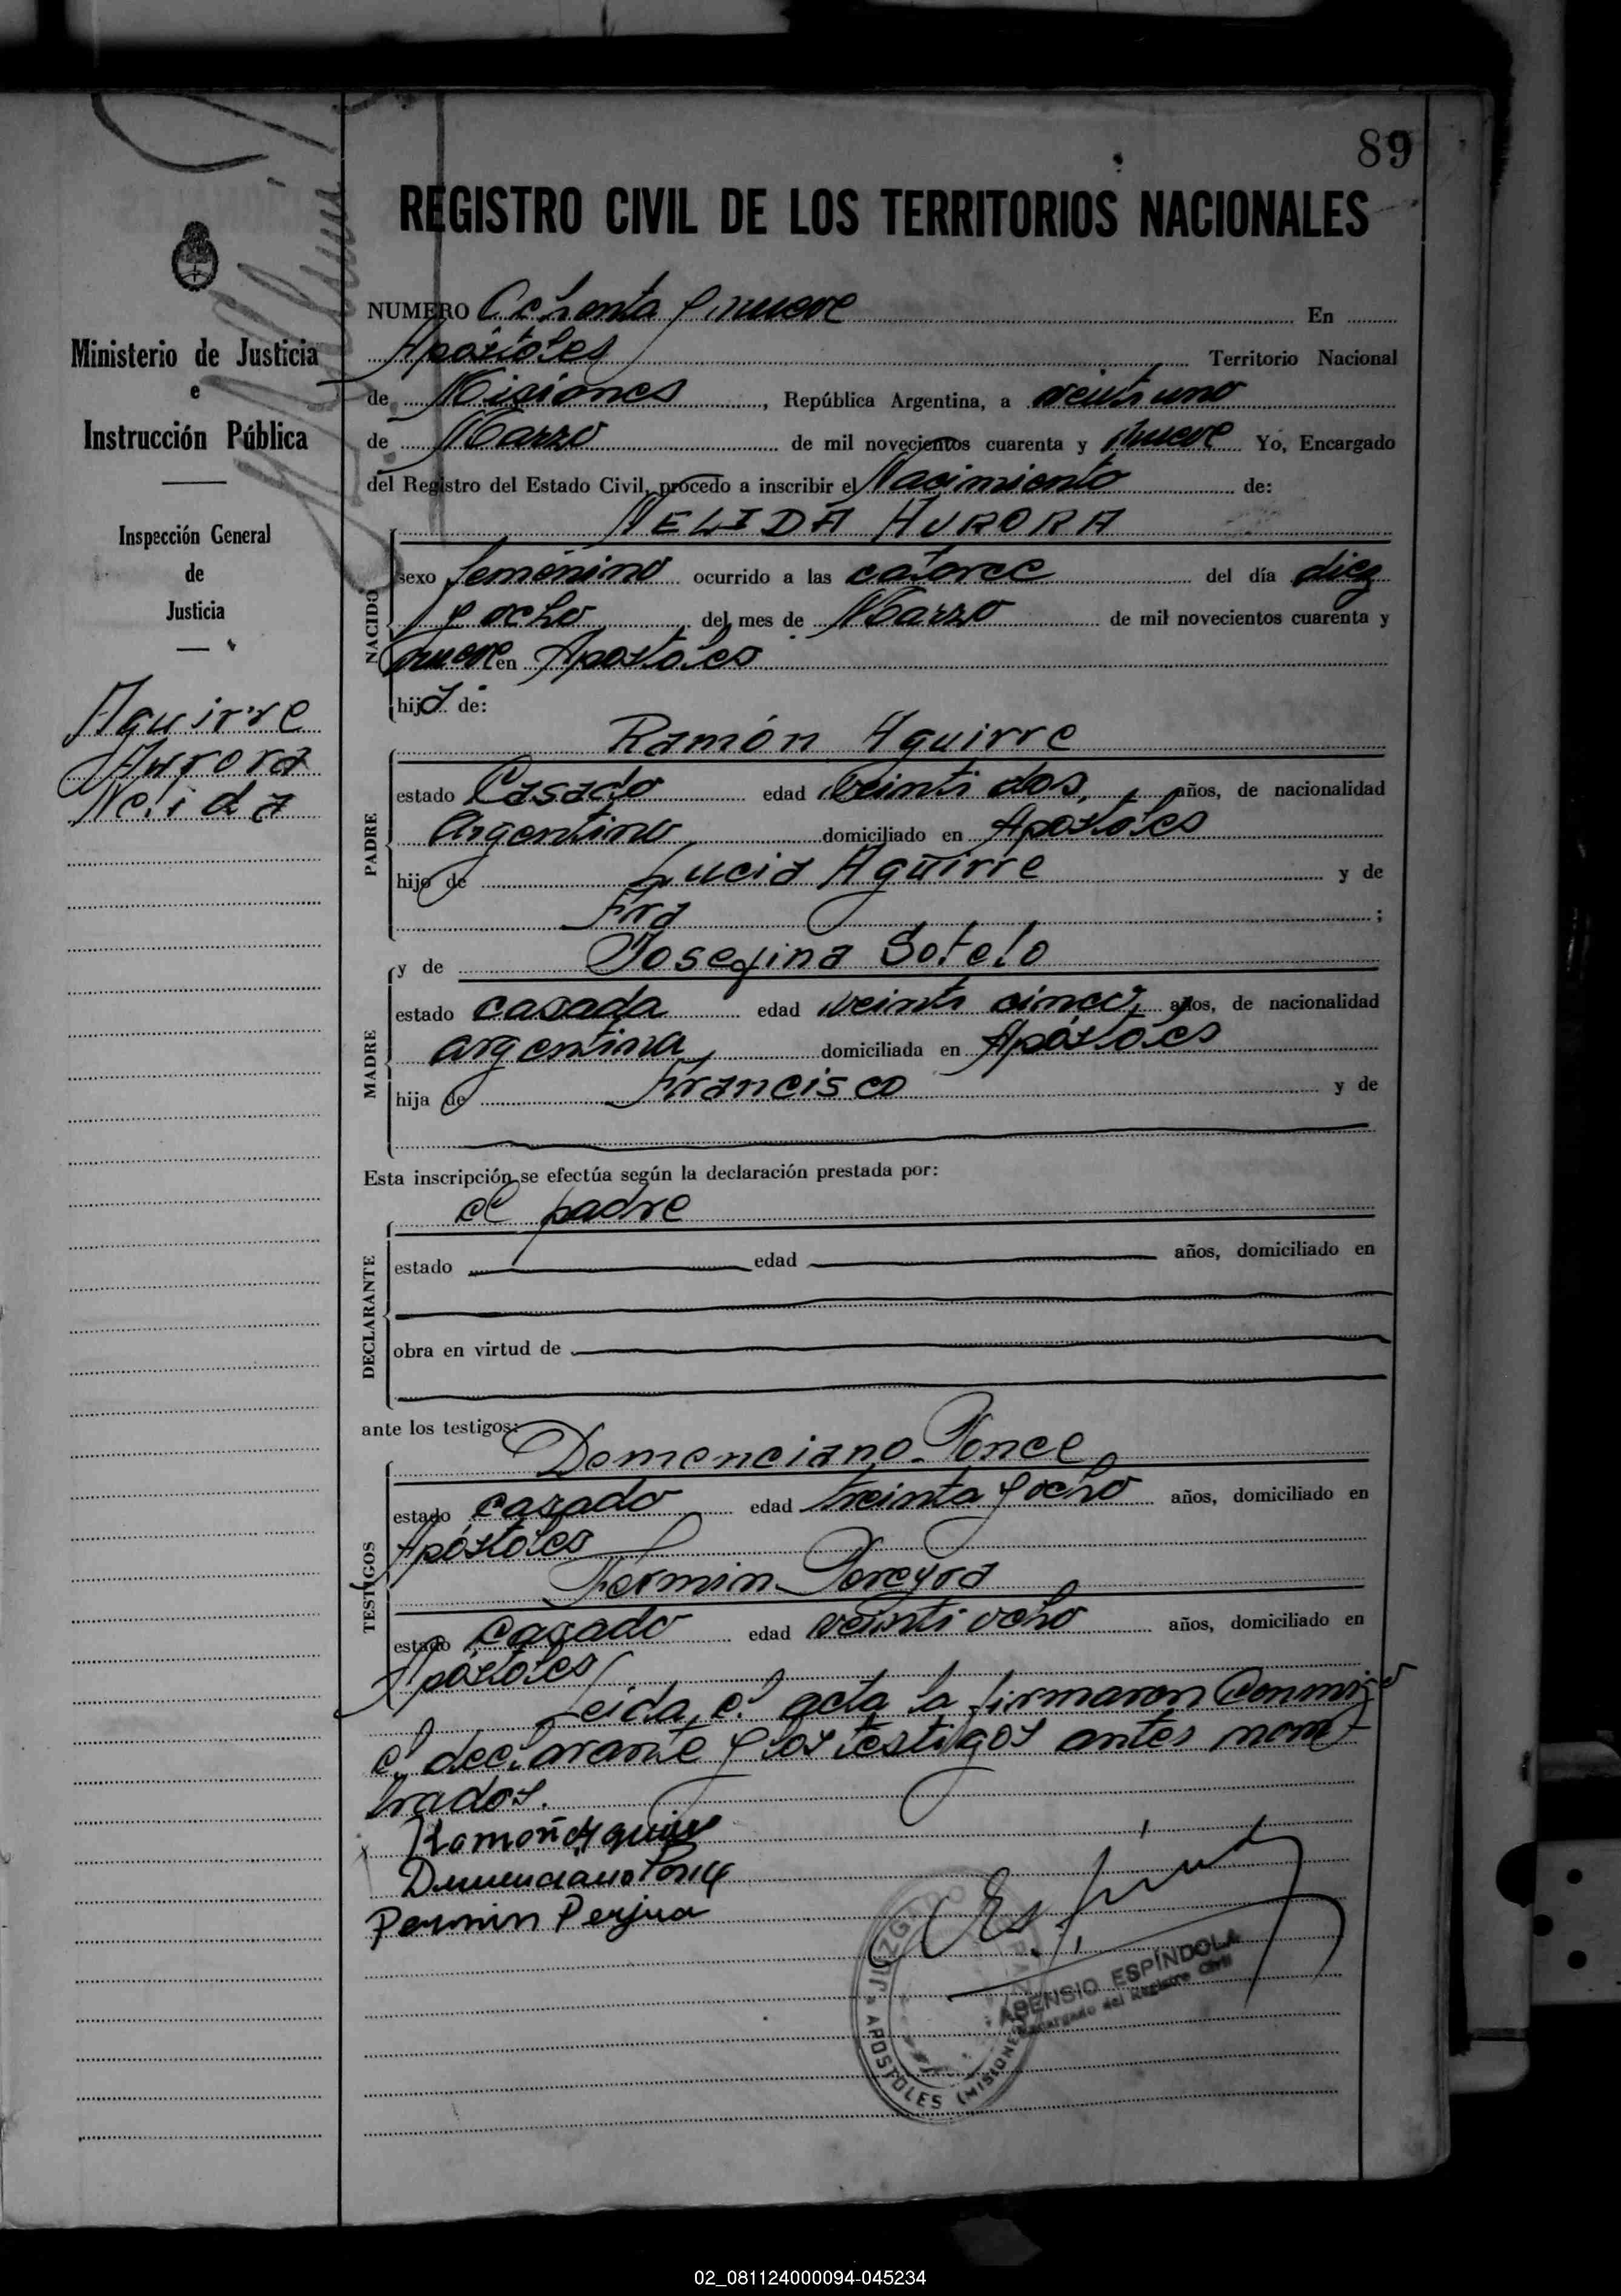 89
REGISTRO CIVIL DE LOS TERRITORIOS NACIONALES
Ministerio de Justicia
e
Instrucción Pública
Inspección General
de
Justicia
Aguirre
Aurora
Nelida
NUMERO Ochenta y nueve En
Apóstoles Territorio Nacional
de Misiones, República Argentina, a veintiuno
de Marzo de mil novecientos cuarenta y nueve Yo, Encargado
del Registro del Estado Civil, procedo a inscribir el Nacimiento de:
NELIDA AURORA
NACIDO
sexo femenino ocurrido a las catorce del día diez
y ocho del mes de Marzo de mil novecientos cuarenta y
nueve en Apostoles
hija de:
Ramón Aguirre
PADRE
estado Casado edad veinti dos, años, de nacionalidad
Argentino domiciliado en Apostoles
hijo de Lucia Aguirre y de
;
y de Josefina Sotelo
MADRE
estado casada edad veinti cinco, años, de nacionalidad
argentina, domiciliada en Apóstoles
hija de Francisco y de
Esta inscripción se efectúa según la declaración prestada por:
el padre
DECLARANTE
estado edad años, domiciliado en
obra en virtud de
ante los testigos:
Demenciano Ponce
TESTIGOS
estado casado edad treinta y ocho años, domiciliado en
Apóstoles
Fermin Pereyra
estado casado edad veinti ocho años, domiciliado en
Apóstoles
Leida el acta la firmaron conmigo
el declarante y los testigos antes nom-
brados.
Ramon Aguirre
Demenciano Ponce
Permin Perjra
JUZGADO DE PAZ
APOSTOLES (MISIONES)
ASENSIO ESPÍNDOLA
Encargado del Registro Civil
02_081124000094-045234